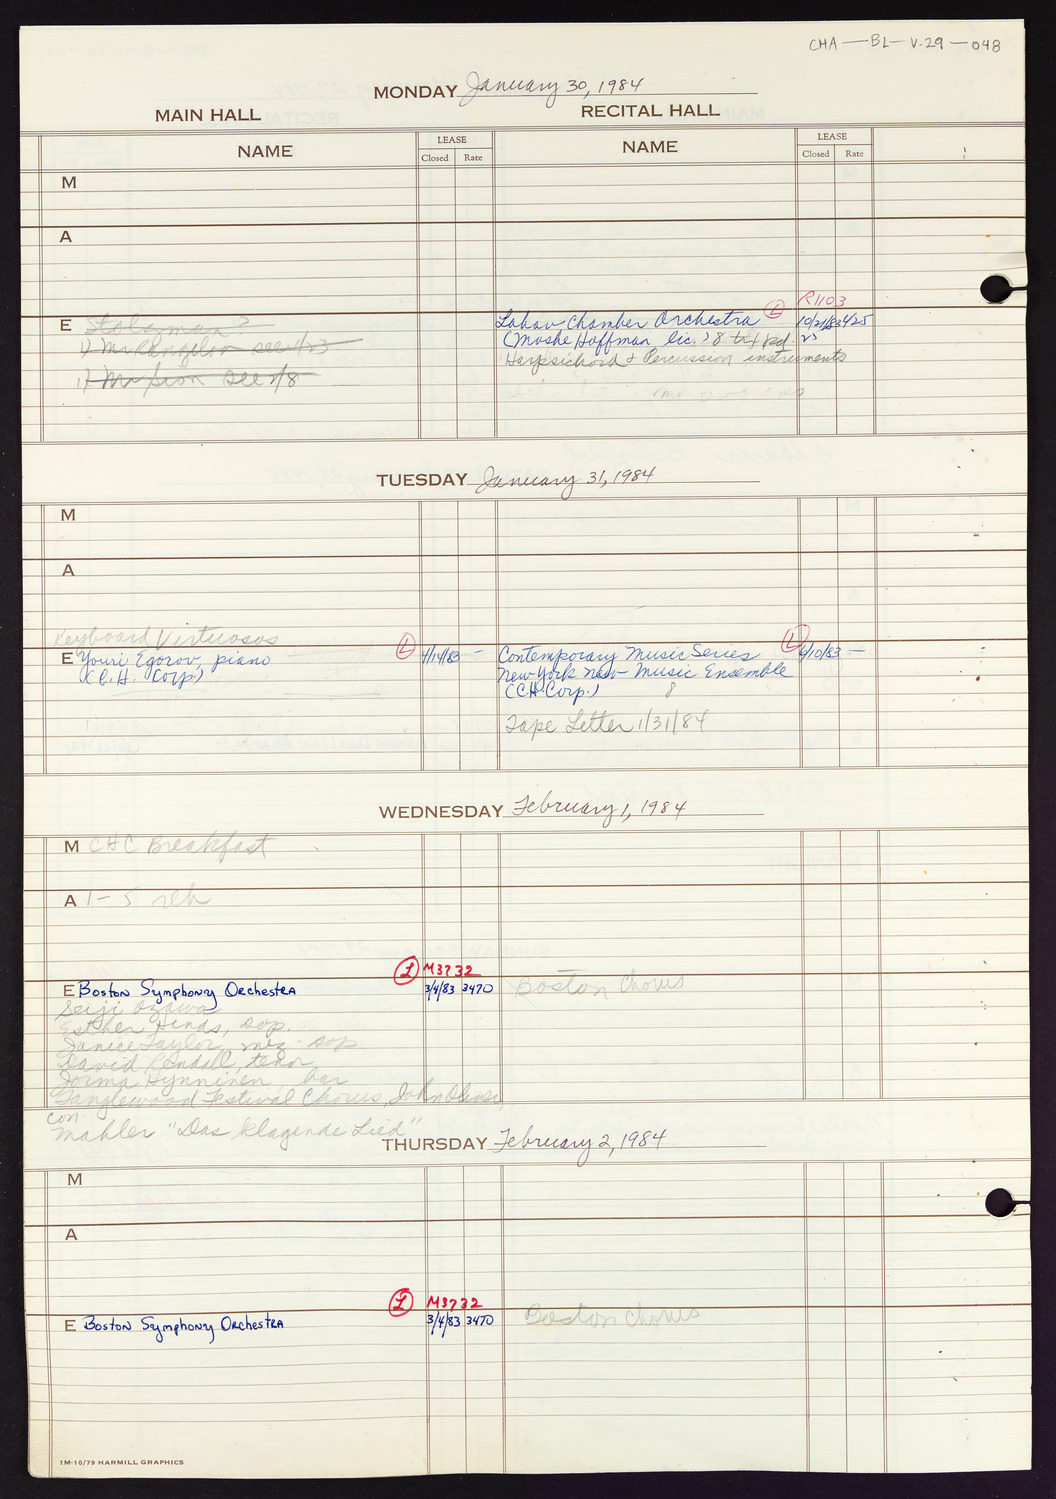 CHA — BL — V.29 — 048
MONDAY January 30, 1984
MAIN HALL RECITAL HALL
NAME LEASE NAME LEASE
Closed Rate Closed Rate
M
A
R1103
E Stolzman? L Lahav Chamber Orchestra 425
1) see 1/23 (Moshe Hoffman lic.)
1) see 2/8 Harpsichord & Percussion instruments
TUESDAY January 31, 1984
M
A
Keyboard Virtuosos
E Youri Egorov, piano L 4/14/83 — Contemporary Music Series L 6/10/83 —
(C.H. Corp.) New York New Music Ensemble
(CH Corp.) 8
Tape Letter 1/31/84
WEDNESDAY February 1, 1984
M CHC Breakfast
A 1-5 reh
L M3732
E Boston Symphony Orchestra 3/4/83 3470 Boston Chorus
Seiji Ozawa
Esther Hinds, sop.
Janice Taylor, mez-sop
David Rendall, tenor
Jorma Hynninen, bar
Tanglewood Festival Chorus, John Oliver,
con.
Mahler "Das klagende Lied"
THURSDAY February 2, 1984
M
A
L M3732
E Boston Symphony Orchestra 3/4/83 3470 Boston Chorus
1M-10/79 HARMILL GRAPHICS